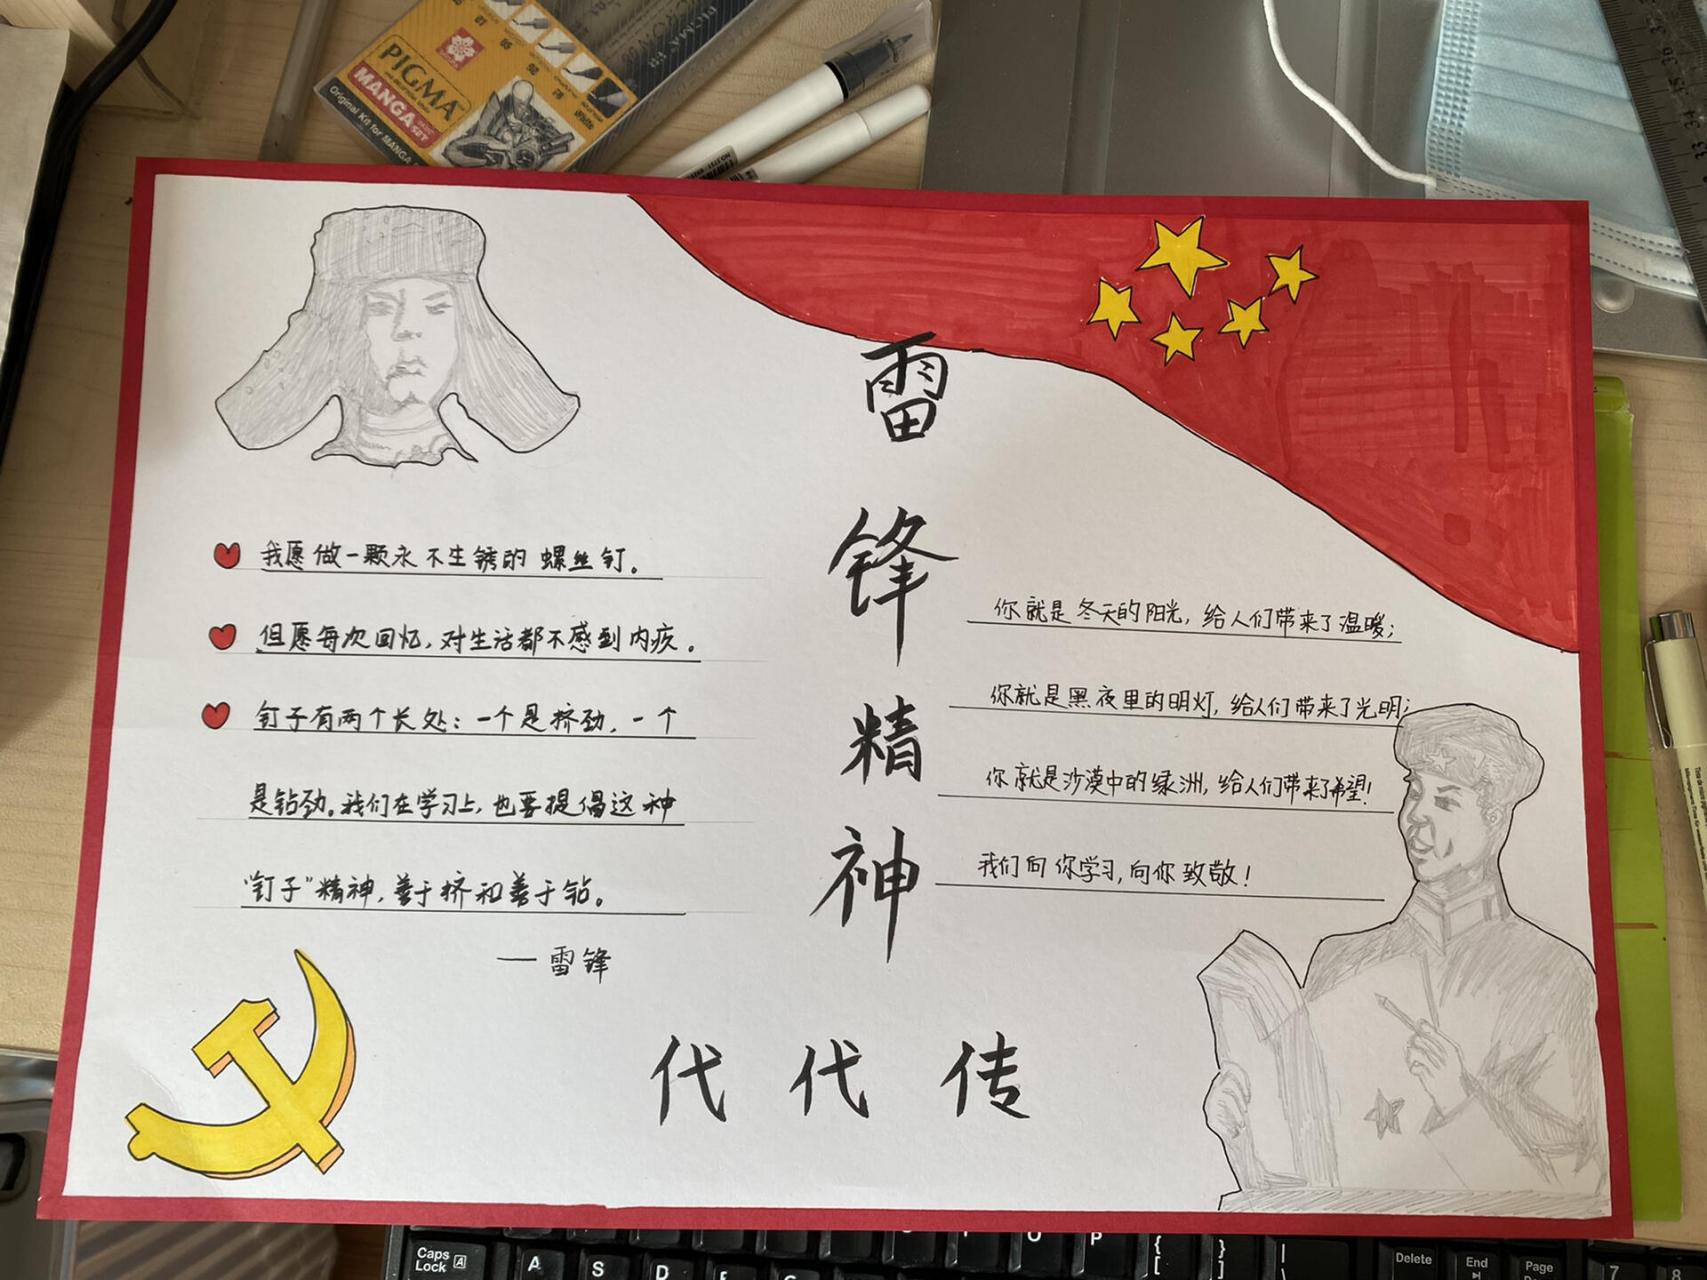 PIGMA
MANGA
BASIC
SET
Original Kit for MANGA
雷锋精神
代代传
我愿做一颗永不生锈的螺丝钉。
但愿每次回忆,对生活都不感到内疚。
钉子有两个长处:一个是挤劲,一个
是钻劲。我们在学习上,也要提倡这种
“钉子”精神,善于挤和善于钻。
— 雷锋
你就是冬天的阳光,给人们带来了温暖;
你就是黑夜里的明灯,给人们带来了光明;
你就是沙漠中的绿洲,给人们带来了希望!
我们向你学习,向你致敬!
Caps Lock A
A
S
D
O
P
{ [
} ]
Delete
End
Page
7
8